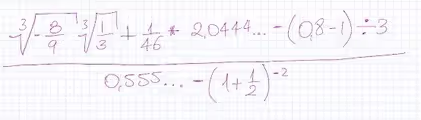 ∛(-8/9) ∛(1/3) + 1/46 * 2,0444... - (0,8-1) ÷ 3
0,555... - (1+1/2)^-2